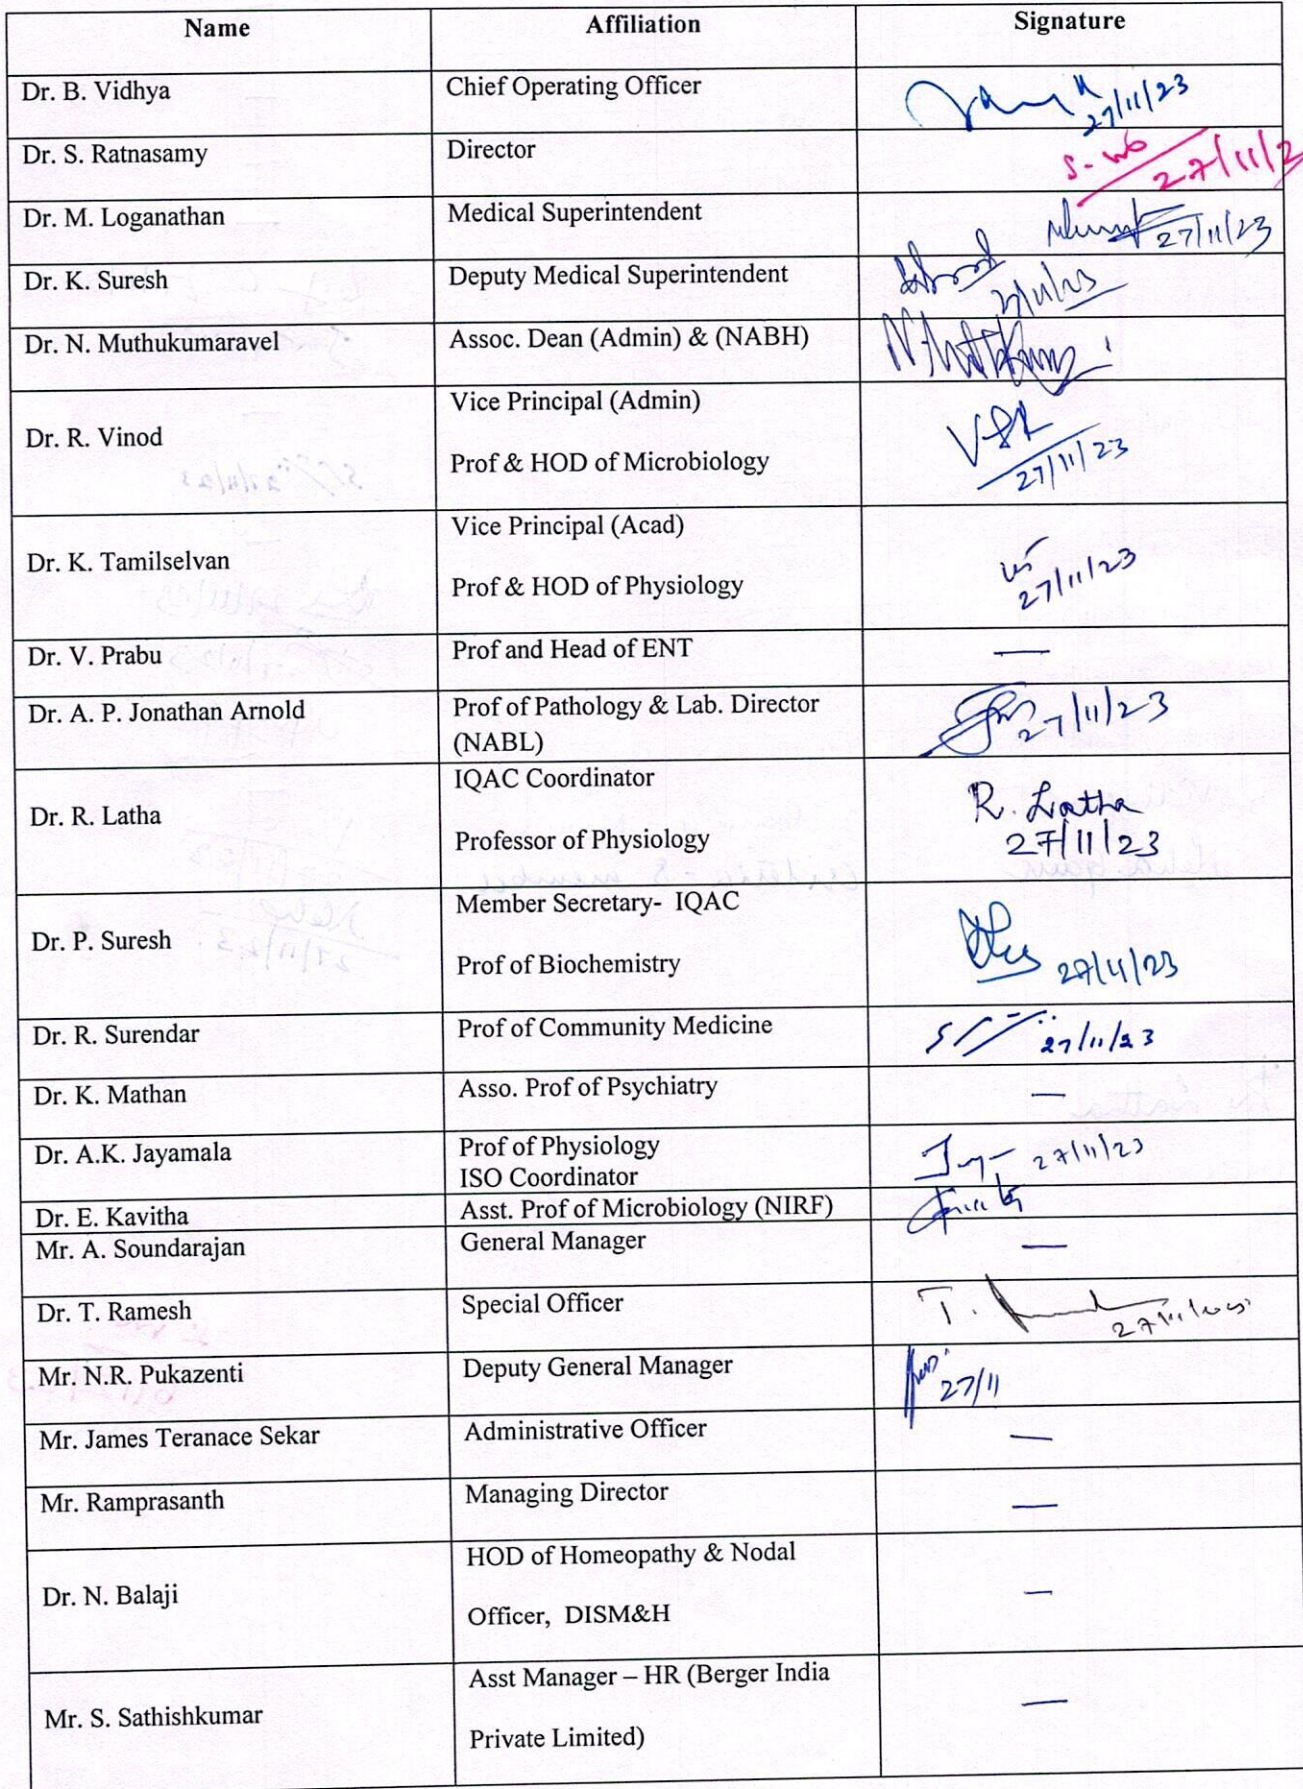 Name Affiliation Signature
Dr. B. Vidhya Chief Operating Officer 27/11/23
Dr. S. Ratnasamy Director 27/11/2
Dr. M. Loganathan Medical Superintendent 27/11/23
Dr. K. Suresh Deputy Medical Superintendent
Dr. N. Muthukumaravel Assoc. Dean (Admin) & (NABH)
Vice Principal (Admin)
Dr. R. Vinod
Prof & HOD of Microbiology 27/11/23
Vice Principal (Acad)
Dr. K. Tamilselvan
Prof & HOD of Physiology 27/11/23
Dr. V. Prabu Prof and Head of ENT —
Dr. A. P. Jonathan Arnold Prof of Pathology & Lab. Director 27/11/23
(NABL)
IQAC Coordinator
Dr. R. Latha R. Latha
Professor of Physiology 27/11/23
Member Secretary- IQAC
Dr. P. Suresh
Prof of Biochemistry 27/11/23
Dr. R. Surendar Prof of Community Medicine 27/11/23
Dr. K. Mathan Asso. Prof of Psychiatry —
Dr. A.K. Jayamala Prof of Physiology 27/11/23
ISO Coordinator
Dr. E. Kavitha Asst. Prof of Microbiology (NIRF)
Mr. A. Soundarajan General Manager —
Dr. T. Ramesh Special Officer T.
Mr. N.R. Pukazenti Deputy General Manager 27/11
Mr. James Teranace Sekar Administrative Officer —
Mr. Ramprasanth Managing Director —
HOD of Homeopathy & Nodal
Dr. N. Balaji —
Officer, DISM&H
Asst Manager – HR (Berger India
Mr. S. Sathishkumar —
Private Limited)